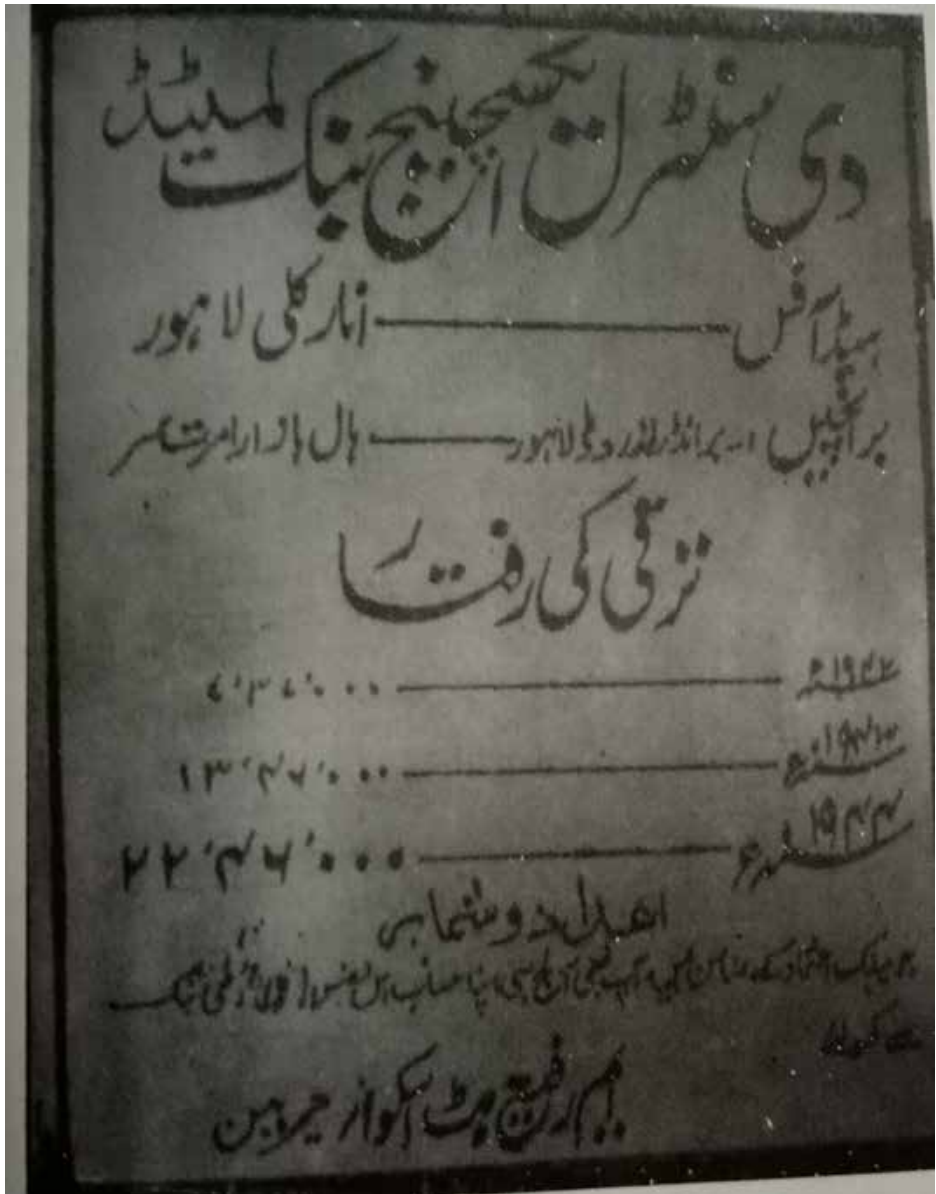 دی سنٹرل ایکسچینج بنک لمیٹڈ
ہیڈ آفس — انار کلی لاہور
برانچیں ۱۔ برانڈرتھ روڈ لاہور — ہال بازار امرت سر
ترقی کی رفتار
۱۹۴۲ء — ۷،۳۷،۰۰۰
۱۹۴۳ء — ۱۳،۴۷،۰۰۰
۱۹۴۴ء — ۲۲،۴۷،۰۰۰
اعداد و شمار
جو پبلک اعتماد کے ضامن ہیں، آپ بھی آج ہی اپنا حساب اس
بنک
سے کھولئے
ایم رفیع بٹ اسکوائر چیرمین